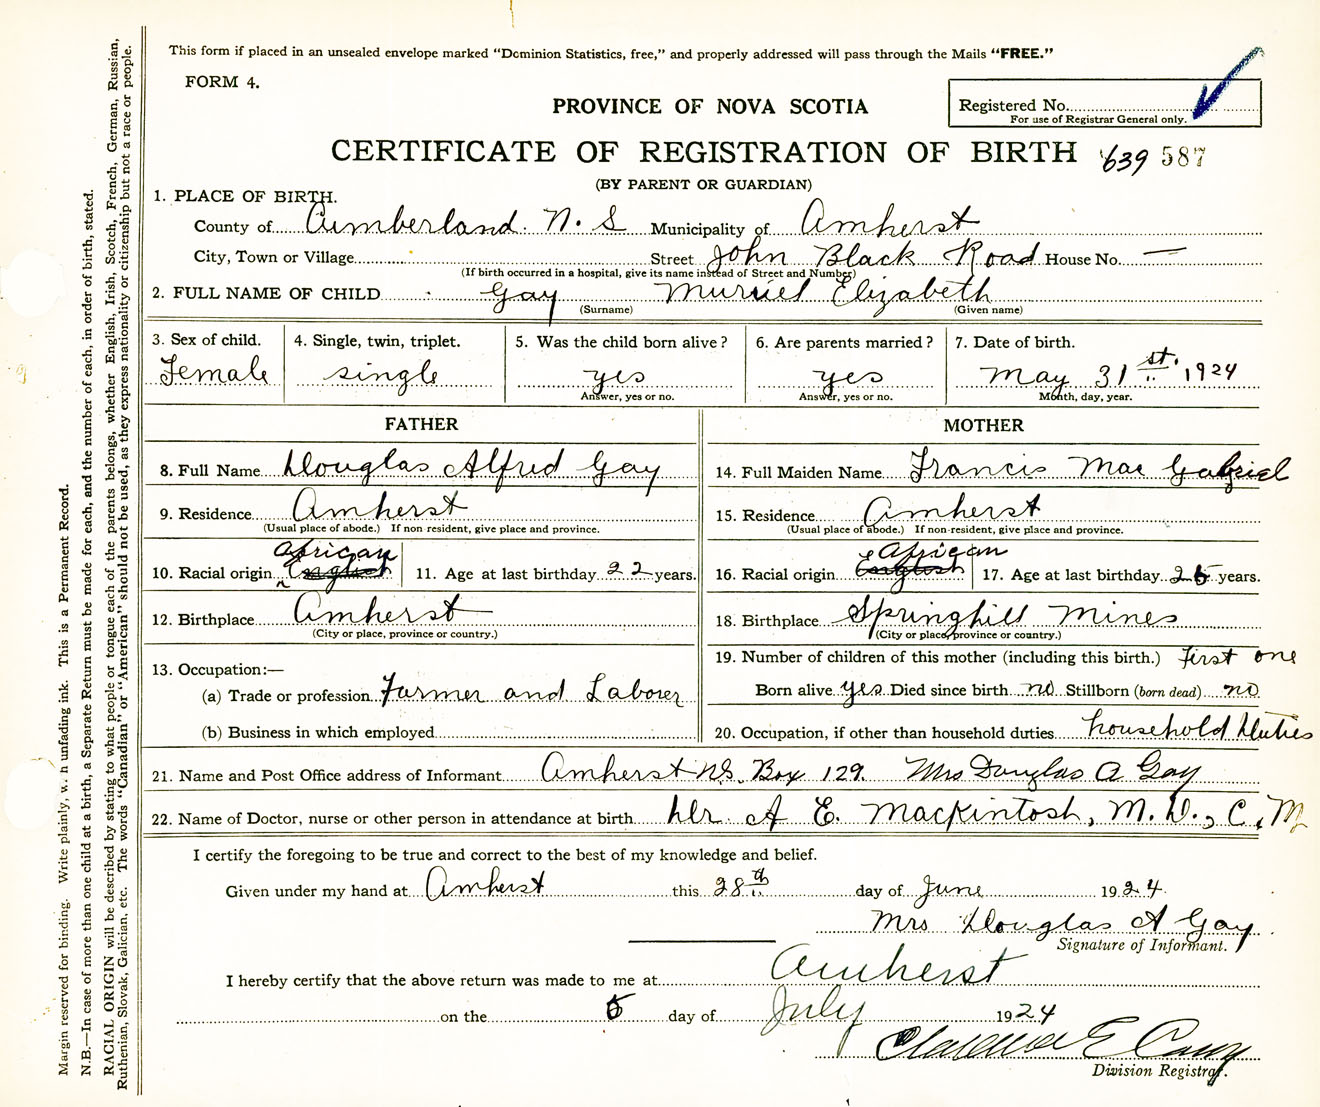 This form if placed in an unsealed envelope marked “Dominion Statistics, free,” and properly addressed will pass through the Mails “FREE.”
FORM 4.
PROVINCE OF NOVA SCOTIA
Registered No.
For use of Registrar General only.
CERTIFICATE OF REGISTRATION OF BIRTH 639 587
(BY PARENT OR GUARDIAN)
1. PLACE OF BIRTH.
County of Cumberland N. S Municipality of Amherst
City, Town or Village Street John Black Road House No. —
(If birth occurred in a hospital, give its name instead of Street and Number)
2. FULL NAME OF CHILD Gay Murriel Elizabeth
(Surname) (Given name)
3. Sex of child. 4. Single, twin, triplet. 5. Was the child born alive? 6. Are parents married? 7. Date of birth.
Female single yes yes May 31st. 1924
Answer, yes or no. Answer, yes or no. Month, day, year.
FATHER MOTHER
8. Full Name Douglas Alfred Gay
9. Residence Amherst
(Usual place of abode.) If non-resident, give place and province.
African
10. Racial origin English 11. Age at last birthday 22 years.
12. Birthplace Amherst
(City or place, province or country.)
13. Occupation:—
(a) Trade or profession Farmer and Laborer
(b) Business in which employed
14. Full Maiden Name Francis Mac Gabriel
15. Residence Amherst
(Usual place of abode.) If non-resident, give place and province.
African
16. Racial origin English 17. Age at last birthday 25 years.
18. Birthplace Springhill Mines
(City or place, province or country.)
19. Number of children of this mother (including this birth.) First one
Born alive yes Died since birth no Stillborn (born dead) no
20. Occupation, if other than household duties household Duties
21. Name and Post Office address of Informant Amherst N.S. Box 129. Mrs Douglas A Gay
22. Name of Doctor, nurse or other person in attendance at birth Dr. A E. Mackintosh, M. D., C. M
I certify the foregoing to be true and correct to the best of my knowledge and belief.
Given under my hand at Amherst this 28th day of June 1924.
Mrs Douglas A Gay
Signature of Informant.
I hereby certify that the above return was made to me at Amherst
on the 5 day of July 1924
Clarence E Casey
Division Registrar.
Margin reserved for binding. Write plainly, unfading ink. This is a Permanent Record.
N.B.—In case of more than one child at a birth, a Separate Return must be made for each, and the number of each, in order of birth, stated.
RACIAL ORIGIN will be described by stating to what people or tongue each of the parents belongs, whether English, Irish, Scotch, French, German, Russian,
Ruthenian, Slovak, Galician, etc. The words “Canadian” or “American” should not be used, as they express nationality or citizenship but not a race or people.